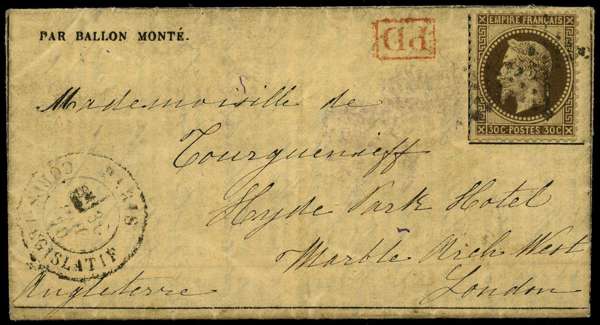 PAR BALLON MONTÉ.
PD
EMPIRE FRANÇAIS
30C POSTES 30C
Mademoiselle de
Tourguenieff
Hyde Park Hotel
Marble Arch West
London
Angleterre
PARIS
CORPS LEGISLATIF